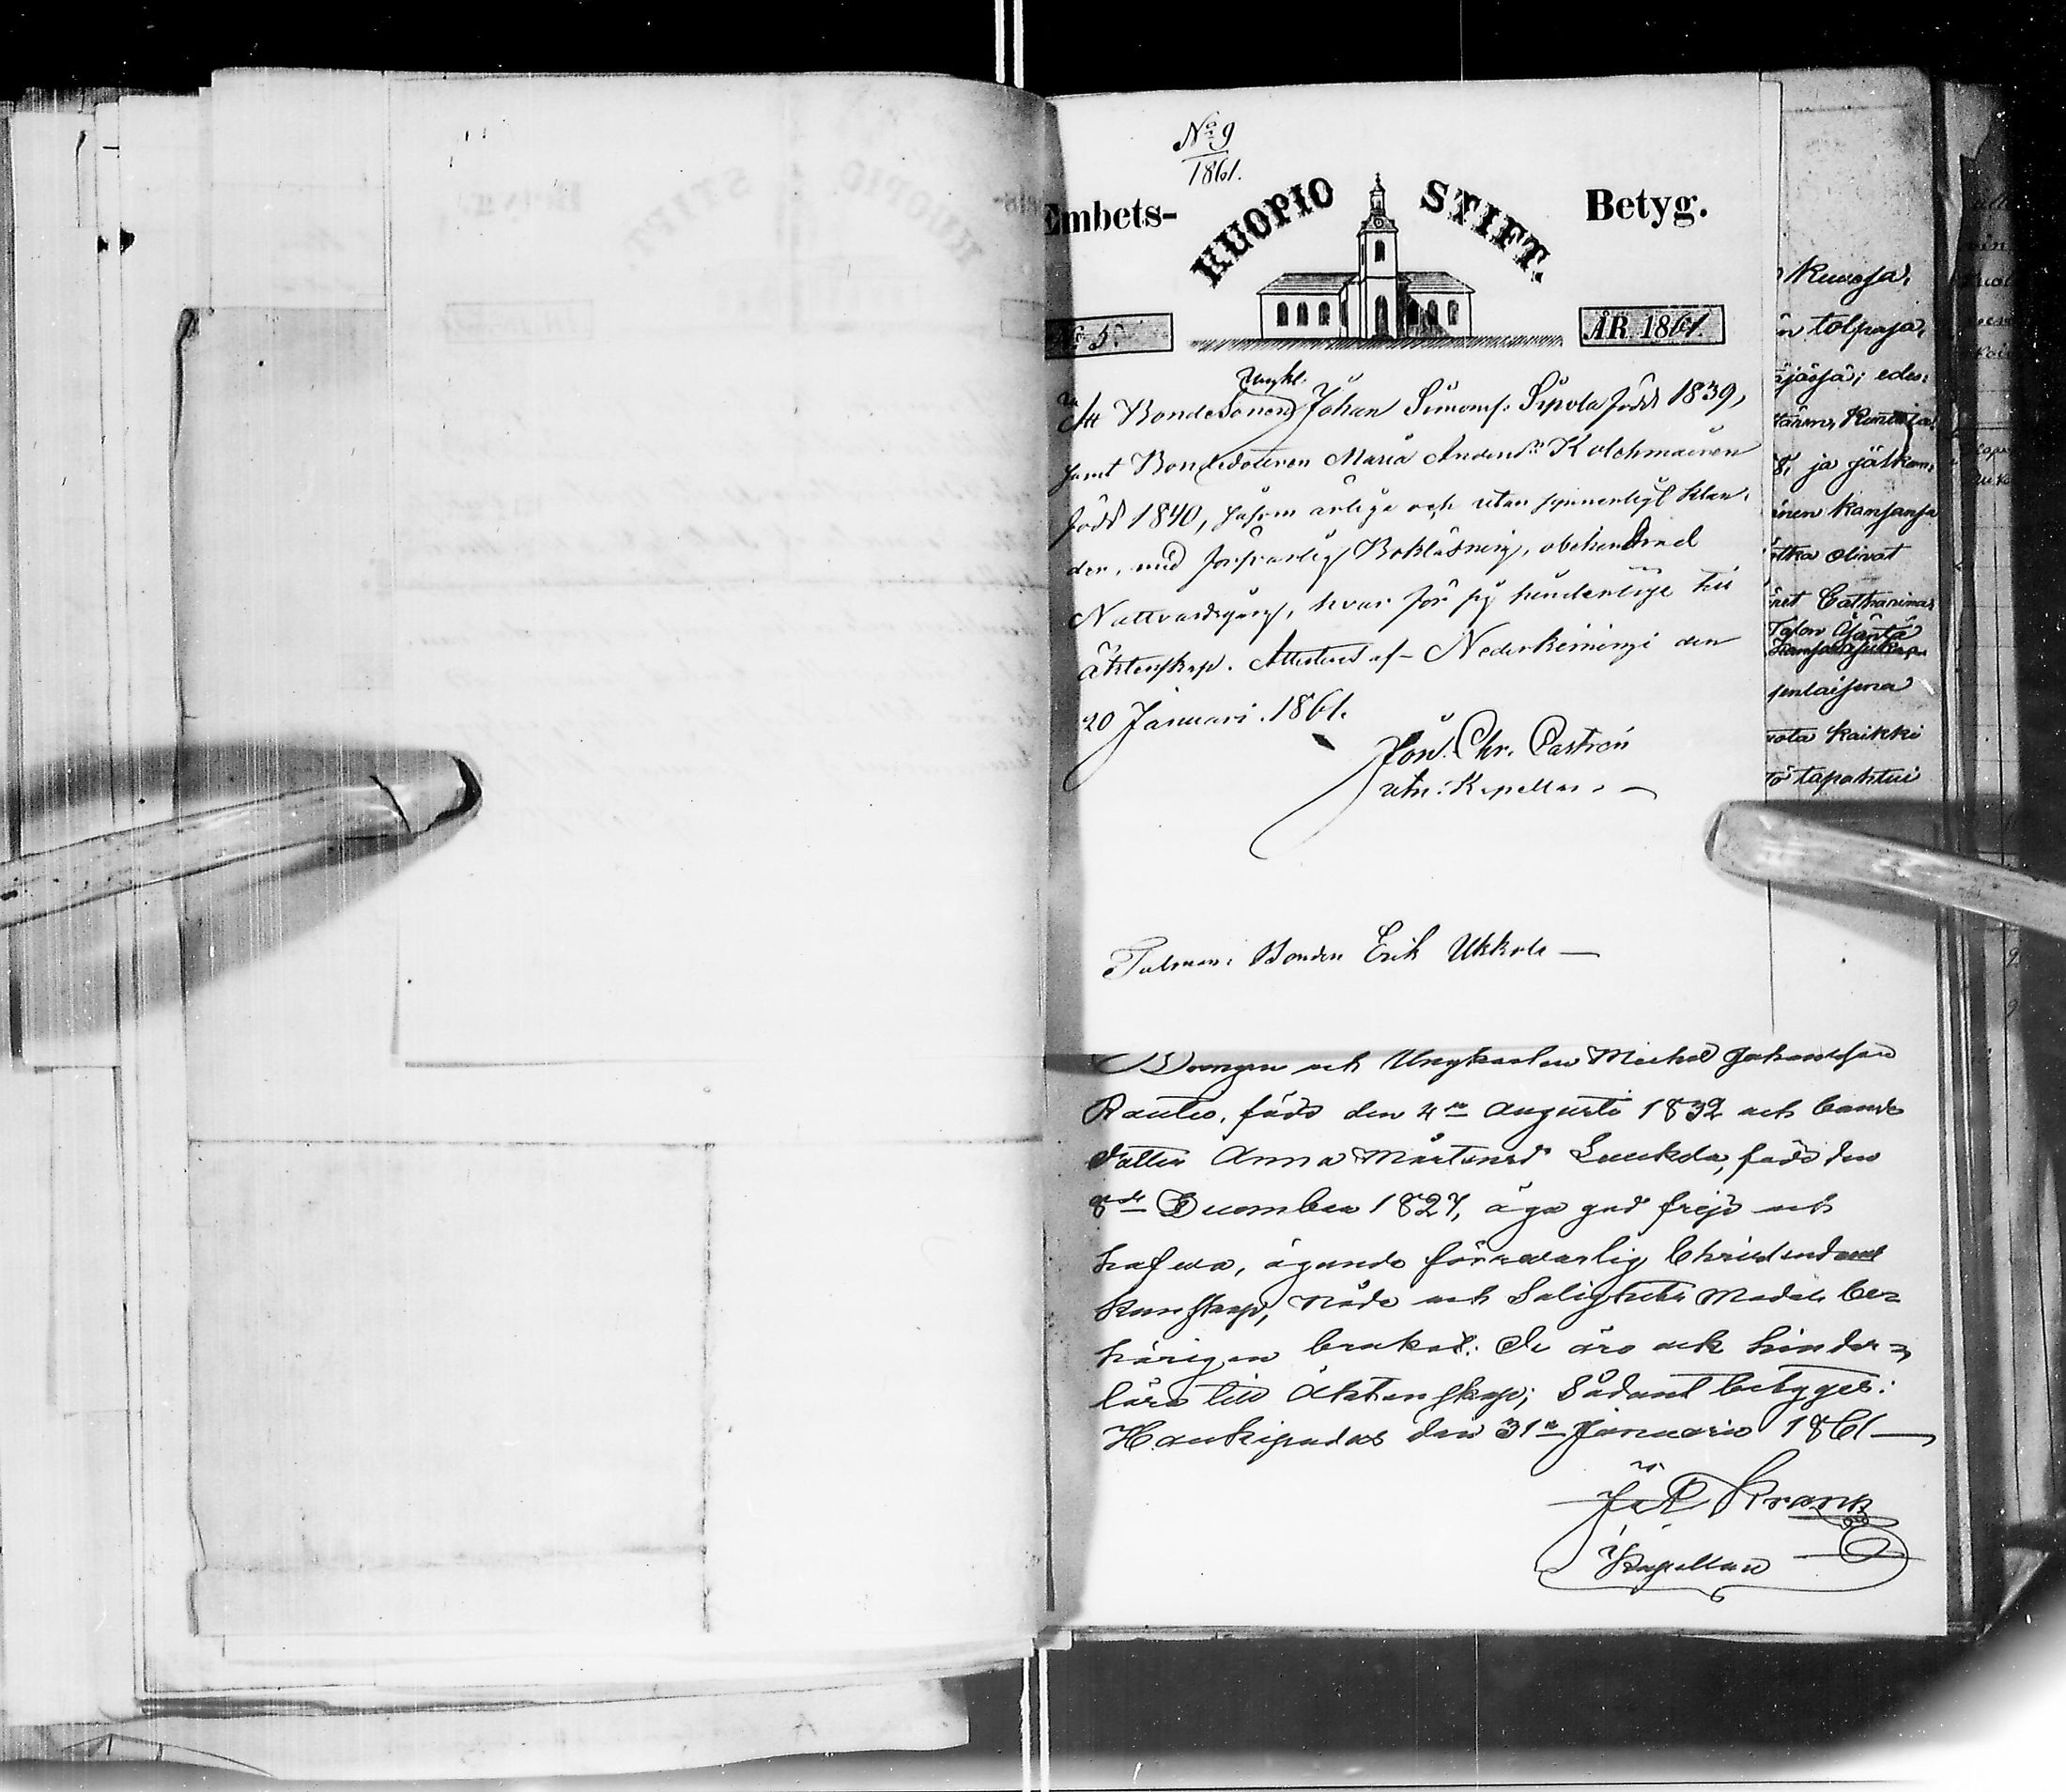 No 9
1861.
Embets- KUOPIO STIFT. Betyg.
No 5. ÅR 1861.
Ungkl.
Att Bondesonen Johan Simonss: Sipola född 1839,
samt Bondedottren Maria Andersdr Kolehmainen
född 1840, såsom ärliga och utan synnerligt klan-
der, med försvarlig Bokläsning, obehindrad
Nattvardsgång, hvar för sig hinderlöse till
äktenskap. Attesteras af Nederkiminge den
20 Januari 1861.
Jon. Chr. Castrén
Kapellan
Talman: Bonden Erik Ukkola
Drengen och Ungkarlen Michel Johansson
Rautio, född den 4de Augusti 1832 och bonde
dotter Anna Mårtensdr Luukela, född den
8de December 1827, äga god frejd och
hafva, ägande försvarlig Christendoms
kunskap, Nåde och Salighets Medel be-
hörigen brukat. De äro ock hinder-
löse till Äktenskap; Sådant betygges:
Haukipudas den 31e Januarii 1861
Krank
Kapellan
kuussa,
tolpaja,
edes-
ja jälkeen,
kansansa
olivat
Catharina
kaikki
tapahtui